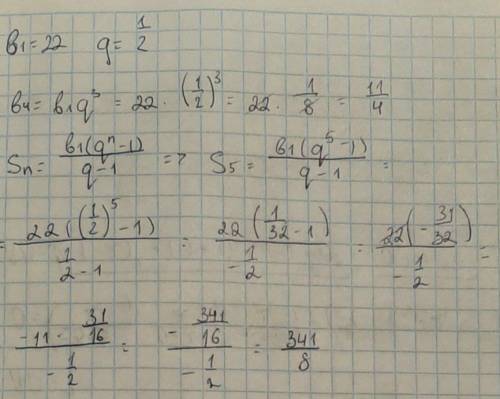 b₁=22 q=1/2
b₄= b₁q³ = 22 · (1/2)³ = 22 · 1/8 = 11/4
Sn= b₁(qⁿ-1)/q-1 => S₅= b₁(q⁵-1)/q-1 =
= 22((1/2)⁵-1)/(1/2-1) = 22(1/32-1)/(-1/2) = 22(-31/32)/(-1/2) =
-11·31/16/(-1/2) = -341/16/(-1/2) = 341/8